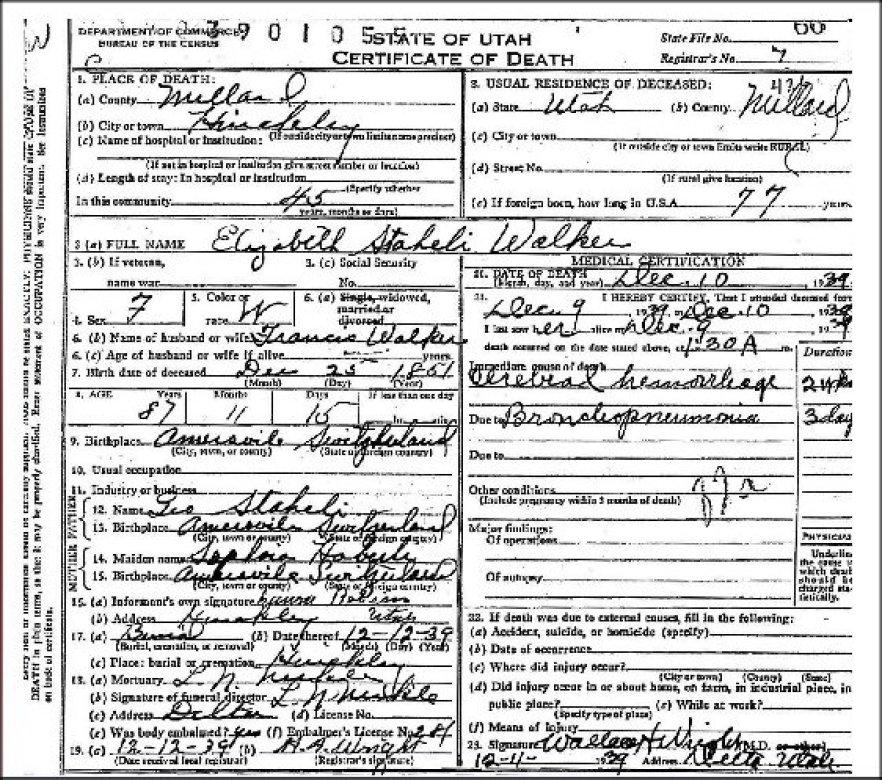 DEPARTMENT OF COMMERCE
BUREAU OF THE CENSUS
3901055
STATE OF UTAH
CERTIFICATE OF DEATH
State File No. 60
Registrar's No. 7
1. PLACE OF DEATH:
(a) County Millard
(b) City or town Hinckley
(If outside city or town limits name precinct)
(c) Name of hospital or institution:
(If not in hospital or institution give street number or location)
(d) Length of stay: In hospital or institution
(Specify whether
In this community 45
years, months or days)
2. USUAL RESIDENCE OF DECEASED:
(a) State Utah (b) County Millard
(c) City or town
(If outside city or town limits write RURAL)
(d) Street No.
(If rural give location)
(e) If foreign born, how long in U.S.A. 77 years
3 (a) FULL NAME Elizabeth Staheli Walker
3. (b) If veteran,
name war
3. (c) Social Security
No.
4. Sex F
5. Color or
race W
6. (a) Single, widowed,
married or
divorced
6. (b) Name of husband or wife Francis Walker
6. (c) Age of husband or wife if alive years
7. Birth date of deceased Dec 25 1851
(Month) (Day) (Year)
8. AGE Years Months Days If less than one day
87 11 15 hr. min.
9. Birthplace Amersvile Switzherland
(City, town, or county) (State or foreign country)
10. Usual occupation
11. Industry or business
FATHER
12. Name Geo Staheli
13. Birthplace Amersvile Switzherland
(City, town or county) (State or foreign country)
MOTHER
14. Maiden name Sophia Haberly
15. Birthplace Amersvile Switzherland
(City, town or county) (State or foreign country)
15. (a) Informant's own signature
(b) Address Hinckley Utah
17. (a) Burial (b) Date thereof 12-12-39
(Burial, cremation, or removal) (Month) (Day) (Year)
(c) Place: burial or cremation Hinckley
18. (a) Mortuary L. N.
(b) Signature of funeral director L N
(c) Address Delta (d) License No.
(e) Was body embalmed? yes (f) Embalmer's License No. 284
19. (a) 12-12-39 (b) H.A. Wright
(Date received local registrar) (Registrar's signature)
MEDICAL CERTIFICATION
20. DATE OF DEATH
(Month, day, and year) Dec. 10 1939
21. I HEREBY CERTIFY, That I attended deceased from
Dec. 9 1939 to Dec 10 1939
I last saw her alive on Dec. 9 1939
death occurred on the date stated above, at 1:30 A m.
Duration
Immediate cause of death
Cerebral hemorrhage 2 wks
Due to Bronchopneumonia 3 day
Due to
Other conditions
(Include pregnancy within 3 months of death)
Major findings:
Of operations
Of autopsy
PHYSICIAN
Underline
the cause
which death
should be
charged sta-
tistically.
22. If death was due to external causes, fill in the following:
(a) Accident, suicide, or homicide (specify)
(b) Date of occurrence
(c) Where did injury occur?
(City or town) (County) (State)
(d) Did injury occur in or about home, on farm, in industrial place, in
public place? (e) While at work?
(Specify type of place)
(f) Means of injury
23. Signature Wallace H Wright (M.D. or other)
1939 Address Delta Utah